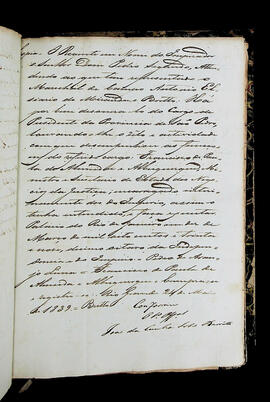 Copia. O Regente em Nome do Imperador
o Senhor Dom Pedro Segundo, Atten-
dendo ao que lhe representou o
Marechal de Campo Antonio El-
ziario de Miranda e Britto: Ha
por bem do Cargo de
Presidente da Provincia de São Pedro,
Louvando-lhe o zelo e actividade
com que desempenhou as funcçoens
do referido cargo: Francisco de Pau-
la de Almeida e Albuquerque, Mi-
nistro e Secretario de Estado dos Nego-
cios da Justiça, encarregado interi-
namente dos do Imperio, assim o
tenha entendido, e faça executar.
Palacio do Rio de Janeiro em
de Março de mil oito centos e trinta
e nove, decimo oitavo da Indepen-
dencia e do Imperio. Pedro de Arau-
jo Lima. Francisco de Paula de
Almeida e Albuquerque. Cumpra-se
e registe-se. Rio Grande 24 de Mai-
o de 1839. Britto
Conforme
João da Cunha Lobo Barreto